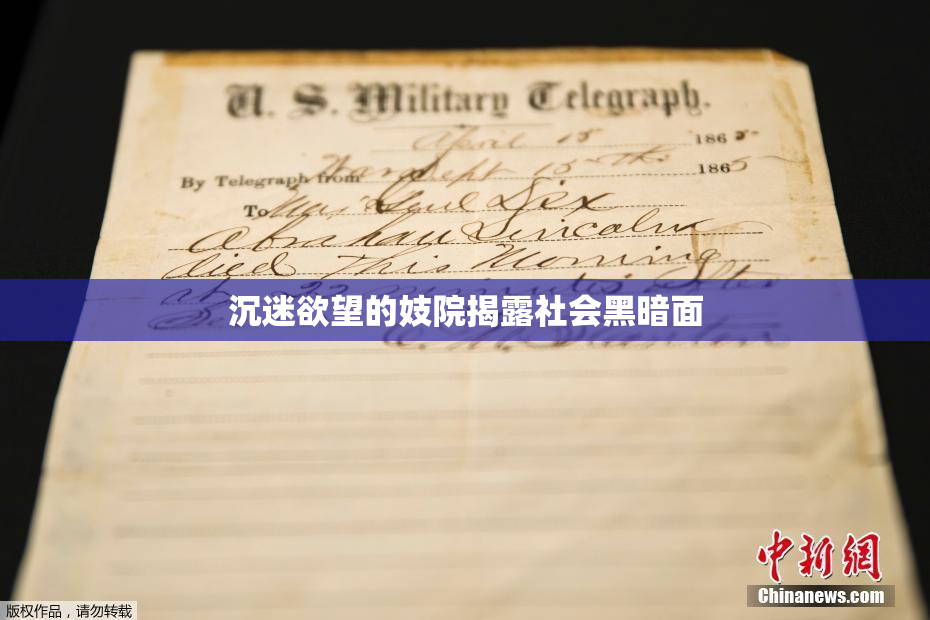 U. S. Military Telegraph.
April 15 1865
By Telegraph from War Dept 15th 1865
To Maj Genl Dix
Abraham Lincoln
died This Morning
at 22 minutes after
沉迷欲望的妓院揭露社会黑暗面
E. M. Stanton
中新網
Chinanews.com
版权作品，请勿转载